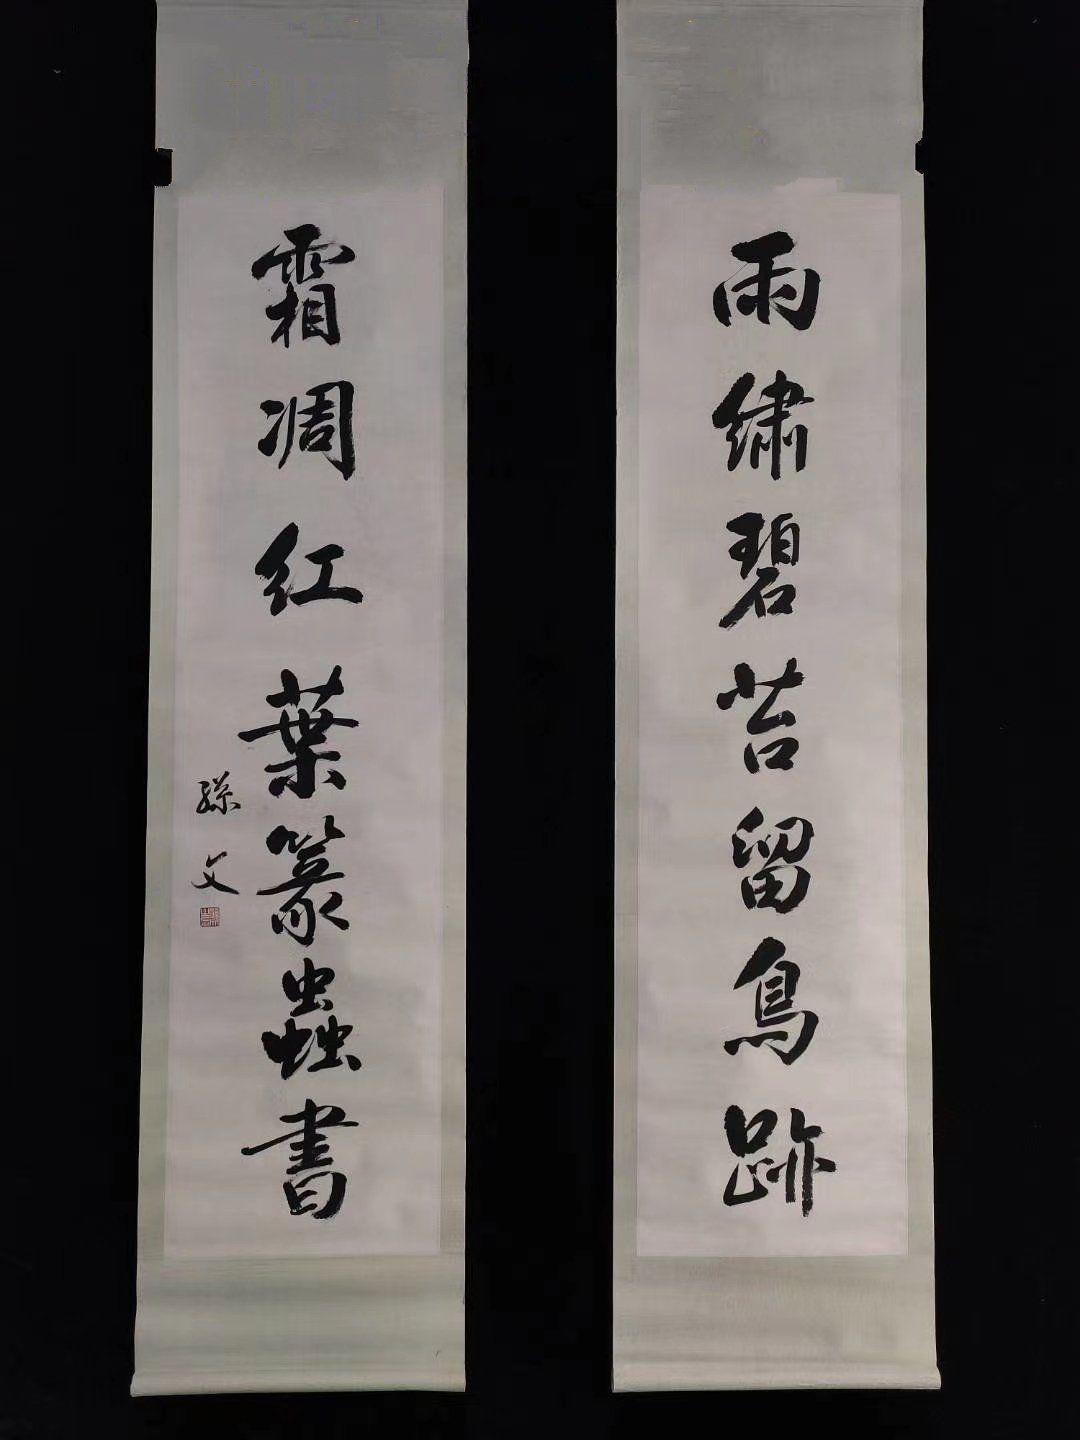 雨繡碧苔留鳥跡
霜凋紅葉篆蟲書
孫文